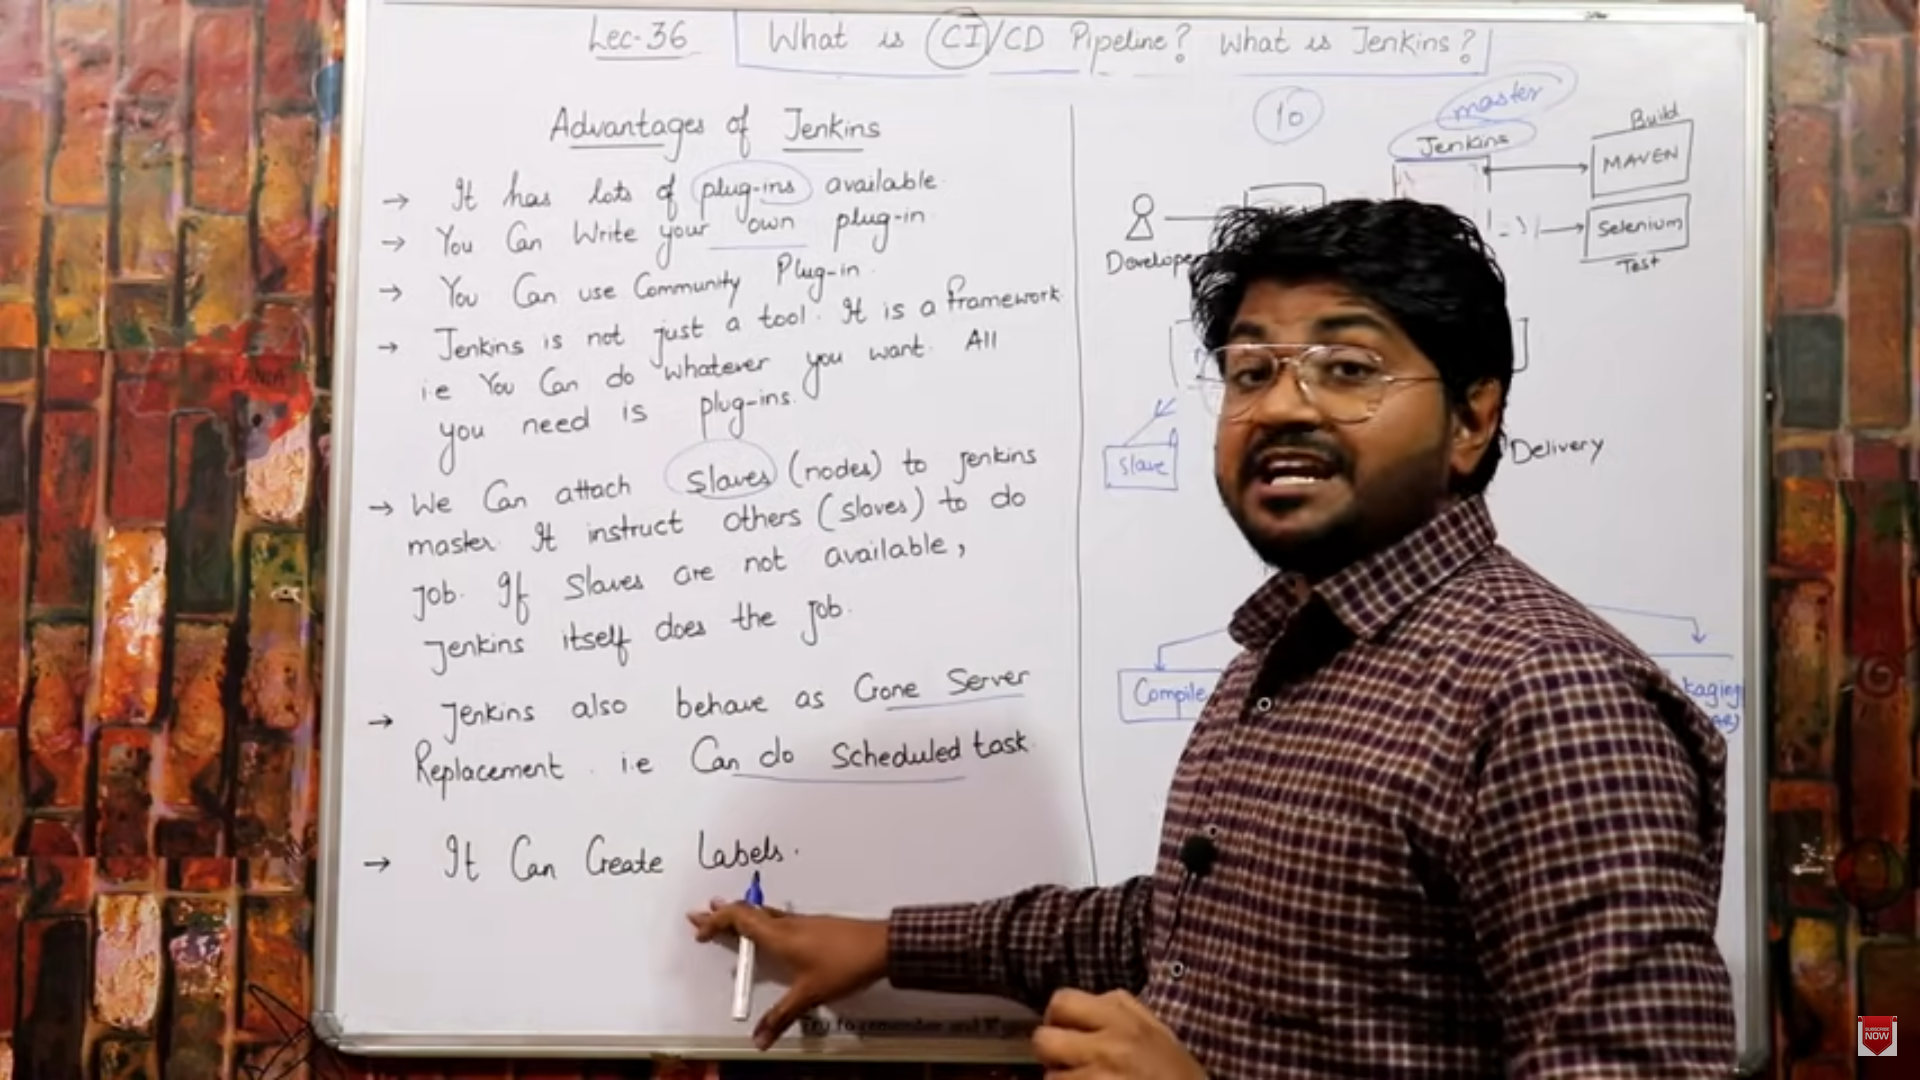 Lec-36 What is CI/CD Pipeline? What is Jenkins?
Advantages of Jenkins
→ It has lots of plug-ins available
→ You Can Write your own plug-in
→ You Can use Community Plug-in.
→ Jenkins is not just a tool. It is a framework
i.e You Can do whatever you want. All
you need is plug-ins.
→ We Can attach Slaves (nodes) to Jenkins
master. It instruct others (slaves) to do
job. If Slaves are not available,
Jenkins itself does the job.
→ Jenkins also behave as Crone Server
Replacement. i.e Can do Scheduled task.
→ It Can Create Labels.
10
master
Jenkins
Build
MAVEN
Selenium
Test
Developer
Slave
Delivery
Compile
kaging
Try to remember and
SUBSCRIBE
NOW